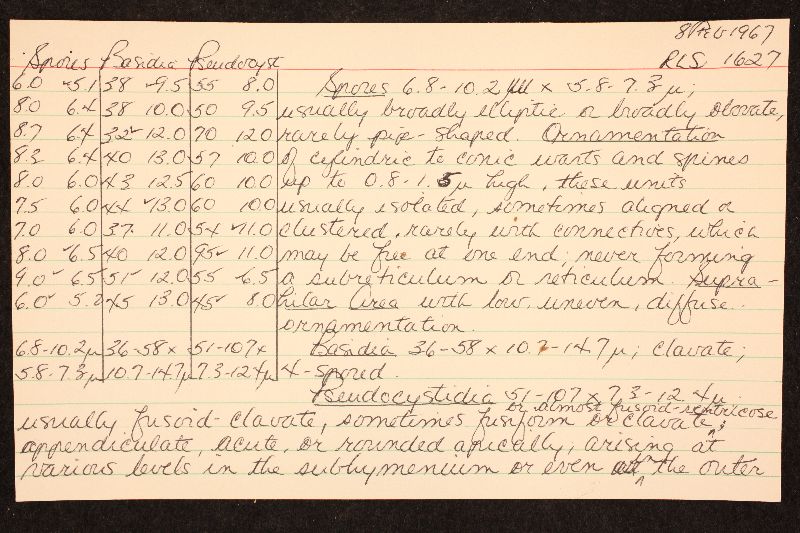 8 Feb 1967
RLS 1627
Spores Basidia Pseudocyst
6.0 5.1 38 9.5 55 8.0 Spores 6.8-10.2 µ x 5.8-7.3 µ;
8.0 6.4 38 10.0 50 9.5 usually broadly elliptic or broadly obovate,
8.7 6.4 32 12.0 70 12.0 rarely pip-shaped. Ornamentation
8.3 6.4 40 13.0 57 10.0 of cylindric to conic warts and spines
8.0 6.0 43 12.5 60 10.0 up to 0.8-1.5 µ high, these units
7.5 6.0 44 13.0 60 10.0 usually isolated, sometimes aligned or
7.0 6.0 37 11.0 54 11.0 clustered, rarely with connectives, which
8.0 6.5 40 12.0 95 11.0 may be free at one end; never forming
9.0 6.5 51 12.0 55 6.5 a subreticulum or reticulum. Supra-
6.0 5.2 45 13.0 45 8.0 hilar area with low, uneven, diffuse
ornamentation.
6.8-10.2µ 36-58 x 51-107 x Basidia 36-58 x 10.7-14.7 µ; clavate;
5.8-7.3µ 10.7-14.7µ 7.3-12.4µ 4-spored.
Pseudocystidia 51-107 x 7.3-12.4 µ
or almost fusoid-ventricose
usually fusoid-clavate, sometimes fusiform or clavate;
appendiculate, acute, or rounded apically; arising at
various levels in the subhymenium or even at the outer